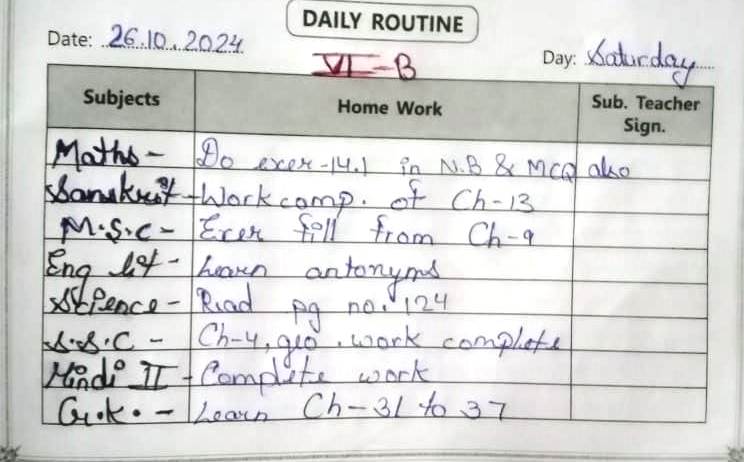 DAILY ROUTINE
Date: 26.10.2024
VI-B
Day: Saturday
Subjects Home Work Sub. Teacher Sign.
Maths - Do exer-14.1 in N.B & MCQ also
Sanskrit - Work comp. of Ch-13
M.S.C - Exer fill from Ch-9
Eng lit - Learn antonyms
Science - Read pg no. 124
S.S.C - Ch-4, geo. work complete
Hindi II - Complete work
G.K. - Learn Ch-31 to 37